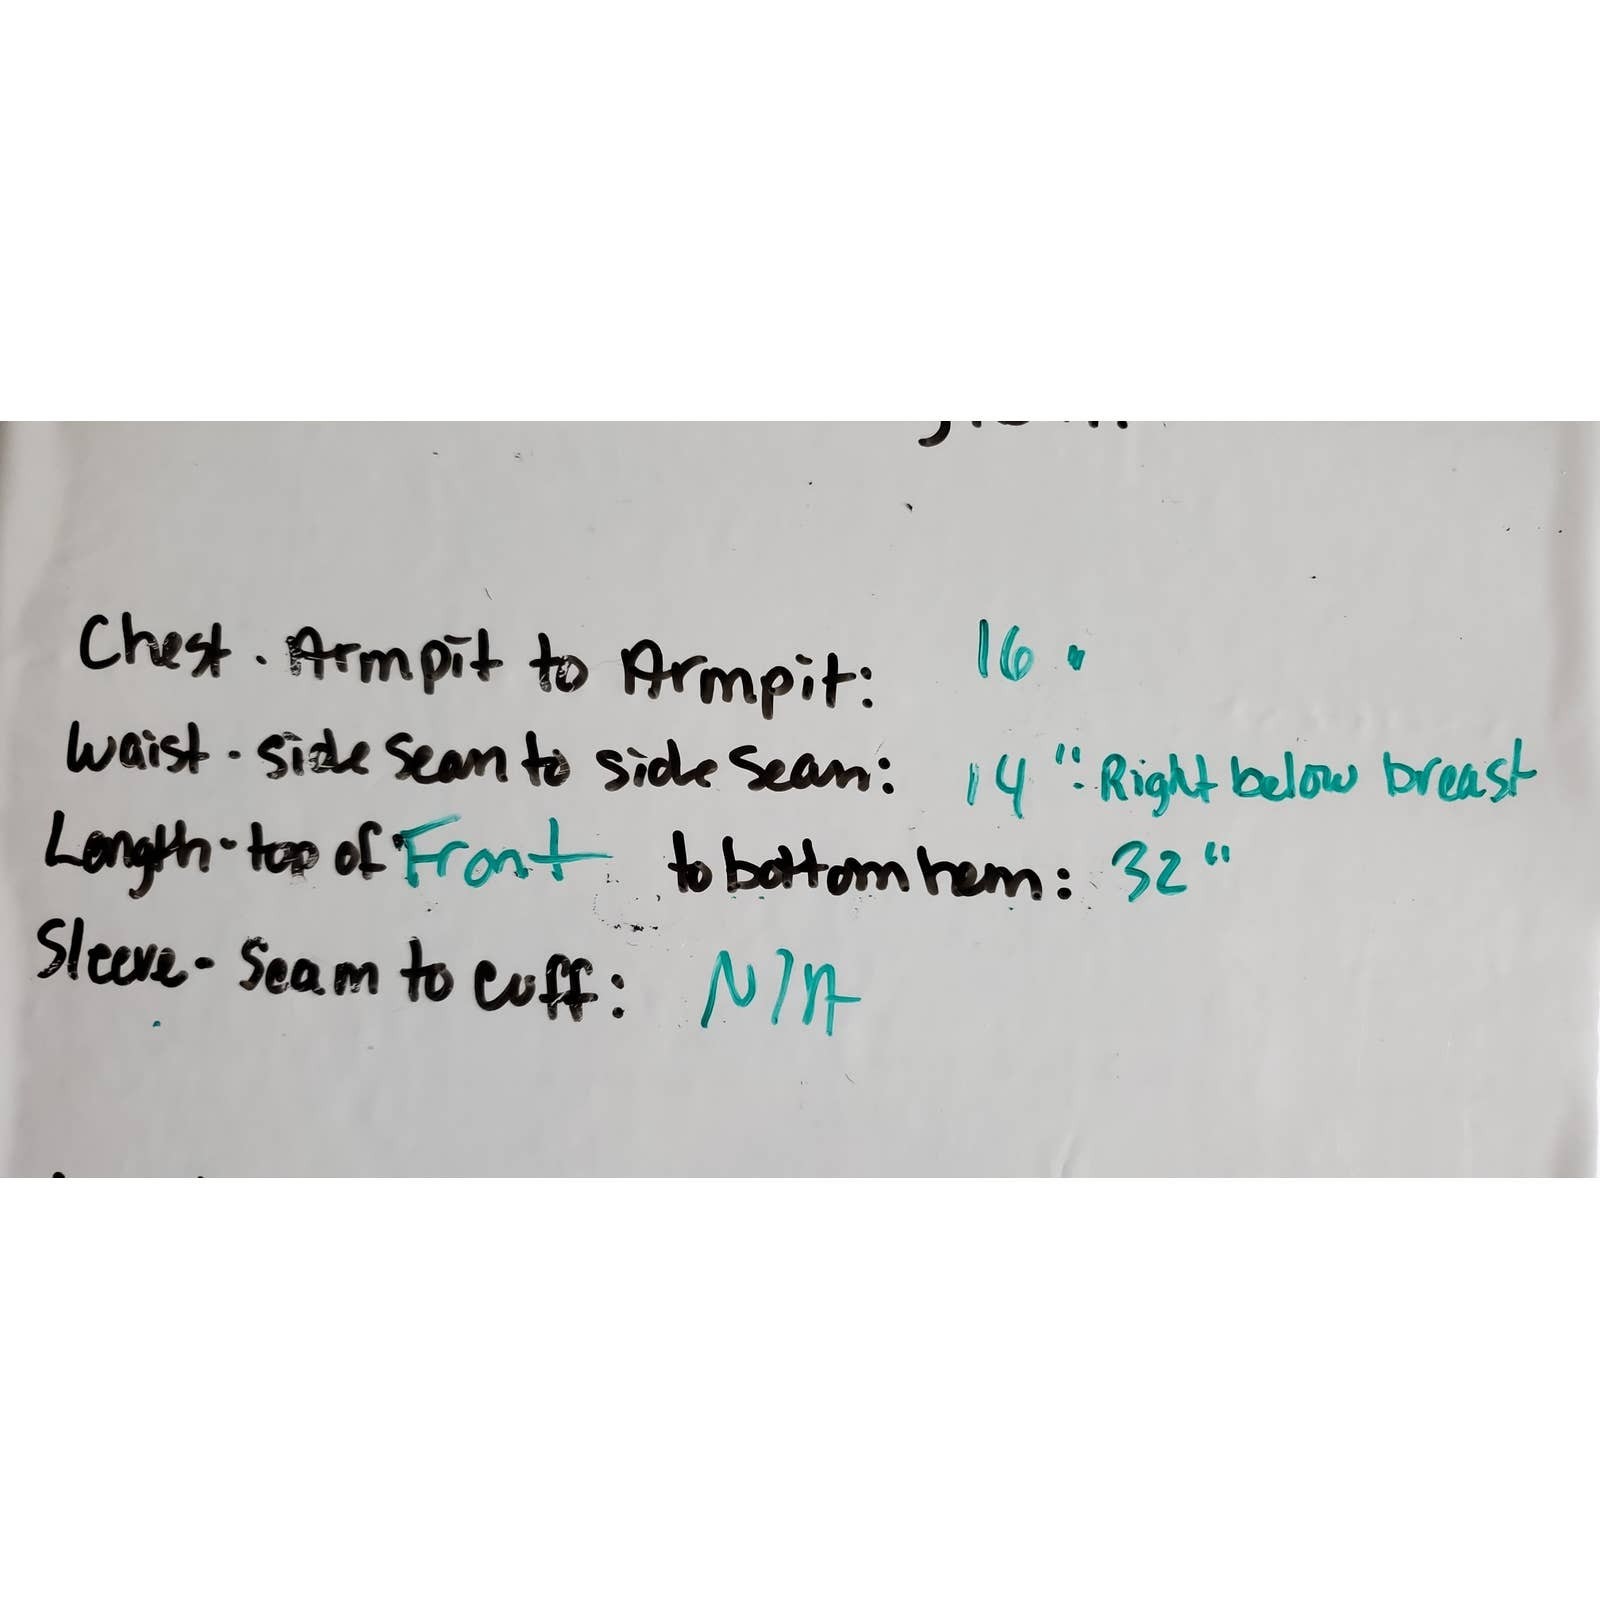 Chest. Armpit to Armpit: 16"
Waist. side seam to side seam: 14": Right below breast
Length. top of Front to bottom hem: 32"
Sleeve- Seam to cuff: N/A